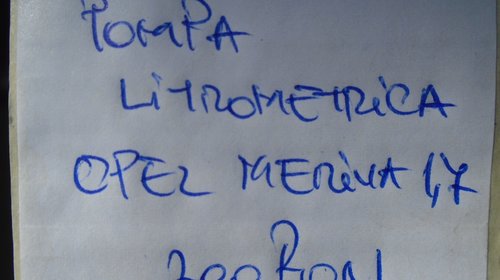 POMPA
LITROMETRICA
OPEL MERIVA 1,7
300 RON